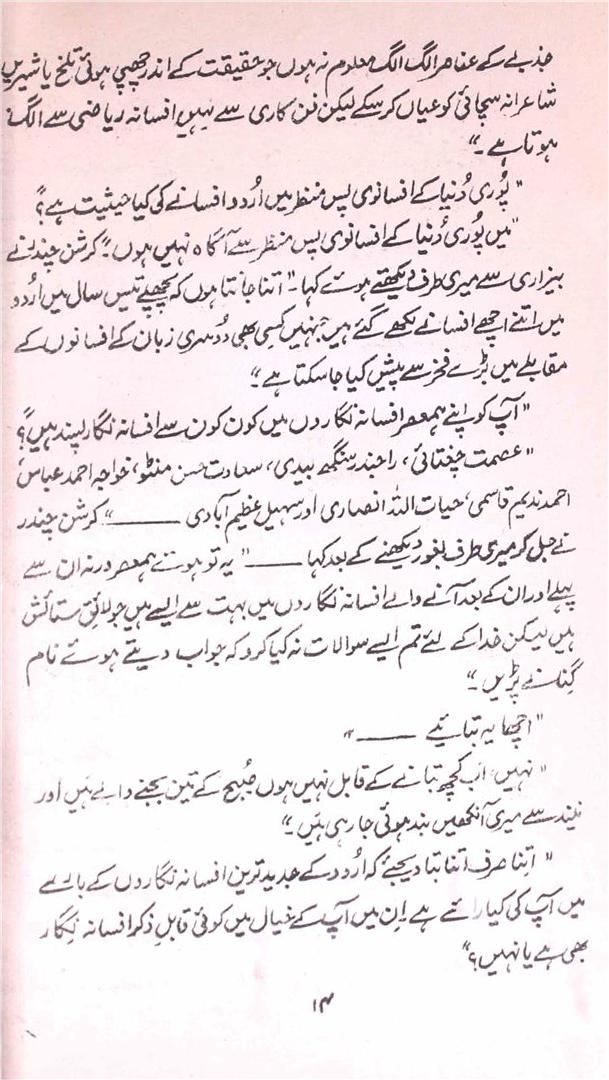 جذبے کے عناصر الگ الگ معلوم نہ ہوں جو حقیقت کے اندر چھپی ہوئی تلخ یا شیریں
شاعرانہ سچائی کو عیاں کر سکے لیکن فن کاری سے نہیں افسانہ ریاضی سے الگ
ہوتا ہے۔"
"پُوری دُنیا کے افسانوی پس منظر میں اُردو افسانے کی کیا حیثیت ہے؟"
"میں پُوری دُنیا کے افسانوی پس منظر سے آگاہ نہیں ہوں۔" کرشن چندر نے
بیزاری سے میری طرف دیکھتے ہوئے کہا۔ "اتنا جانتا ہوں کہ پچھلے تیس سال میں اُردو
میں اتنے اچھے افسانے لکھے گئے ہیں جنہیں کسی بھی دوسری زبان کے افسانوں کے
مقابلے میں بڑے فخر سے پیش کیا جا سکتا ہے۔"
"آپ کو اپنے ہمعصر افسانہ نگاروں میں کون کون سے افسانہ نگار پسند ہیں؟"
"عصمت چغتائی، راجندر سنگھ بیدی، سعادت حسن منٹو، خواجہ احمد عباس،
احمد ندیم قاسمی، حیات اللہ انصاری اور سہیل عظیم آبادی ــــــ" کرشن چندر
نے جل کر میری طرف بغور دیکھنے کے بعد کہا ــــــ "یہ تو ہوئے ہمعصر ورنہ ان سے
پہلے اور ان کے بعد آنے والے افسانہ نگاروں میں بہت سے ایسے ہیں جو لائقِ ستائش
ہیں لیکن خدا کے لئے تم ایسے سوالات نہ کیا کرو کہ جواب دیتے ہوئے نام
گِنانے پڑیں۔"
"اچھا یہ بتائیے ــــــ"
"نہیں، اب کچھ بتانے کے قابل نہیں ہوں صُبح کے تین بجنے والے ہیں اور
نیند سے میری آنکھیں بند ہوئی جا رہی ہیں۔"
"اِتنا صرف اتنا بتا دیجئے کہ اُردو کے جدید ترین افسانہ نگاروں کے بارے
میں آپ کی کیا رائے ہے اِن میں آپ کے خیال میں کوئی قابلِ ذکر افسانہ نگار
بھی ہے یا نہیں؟"
۱۴